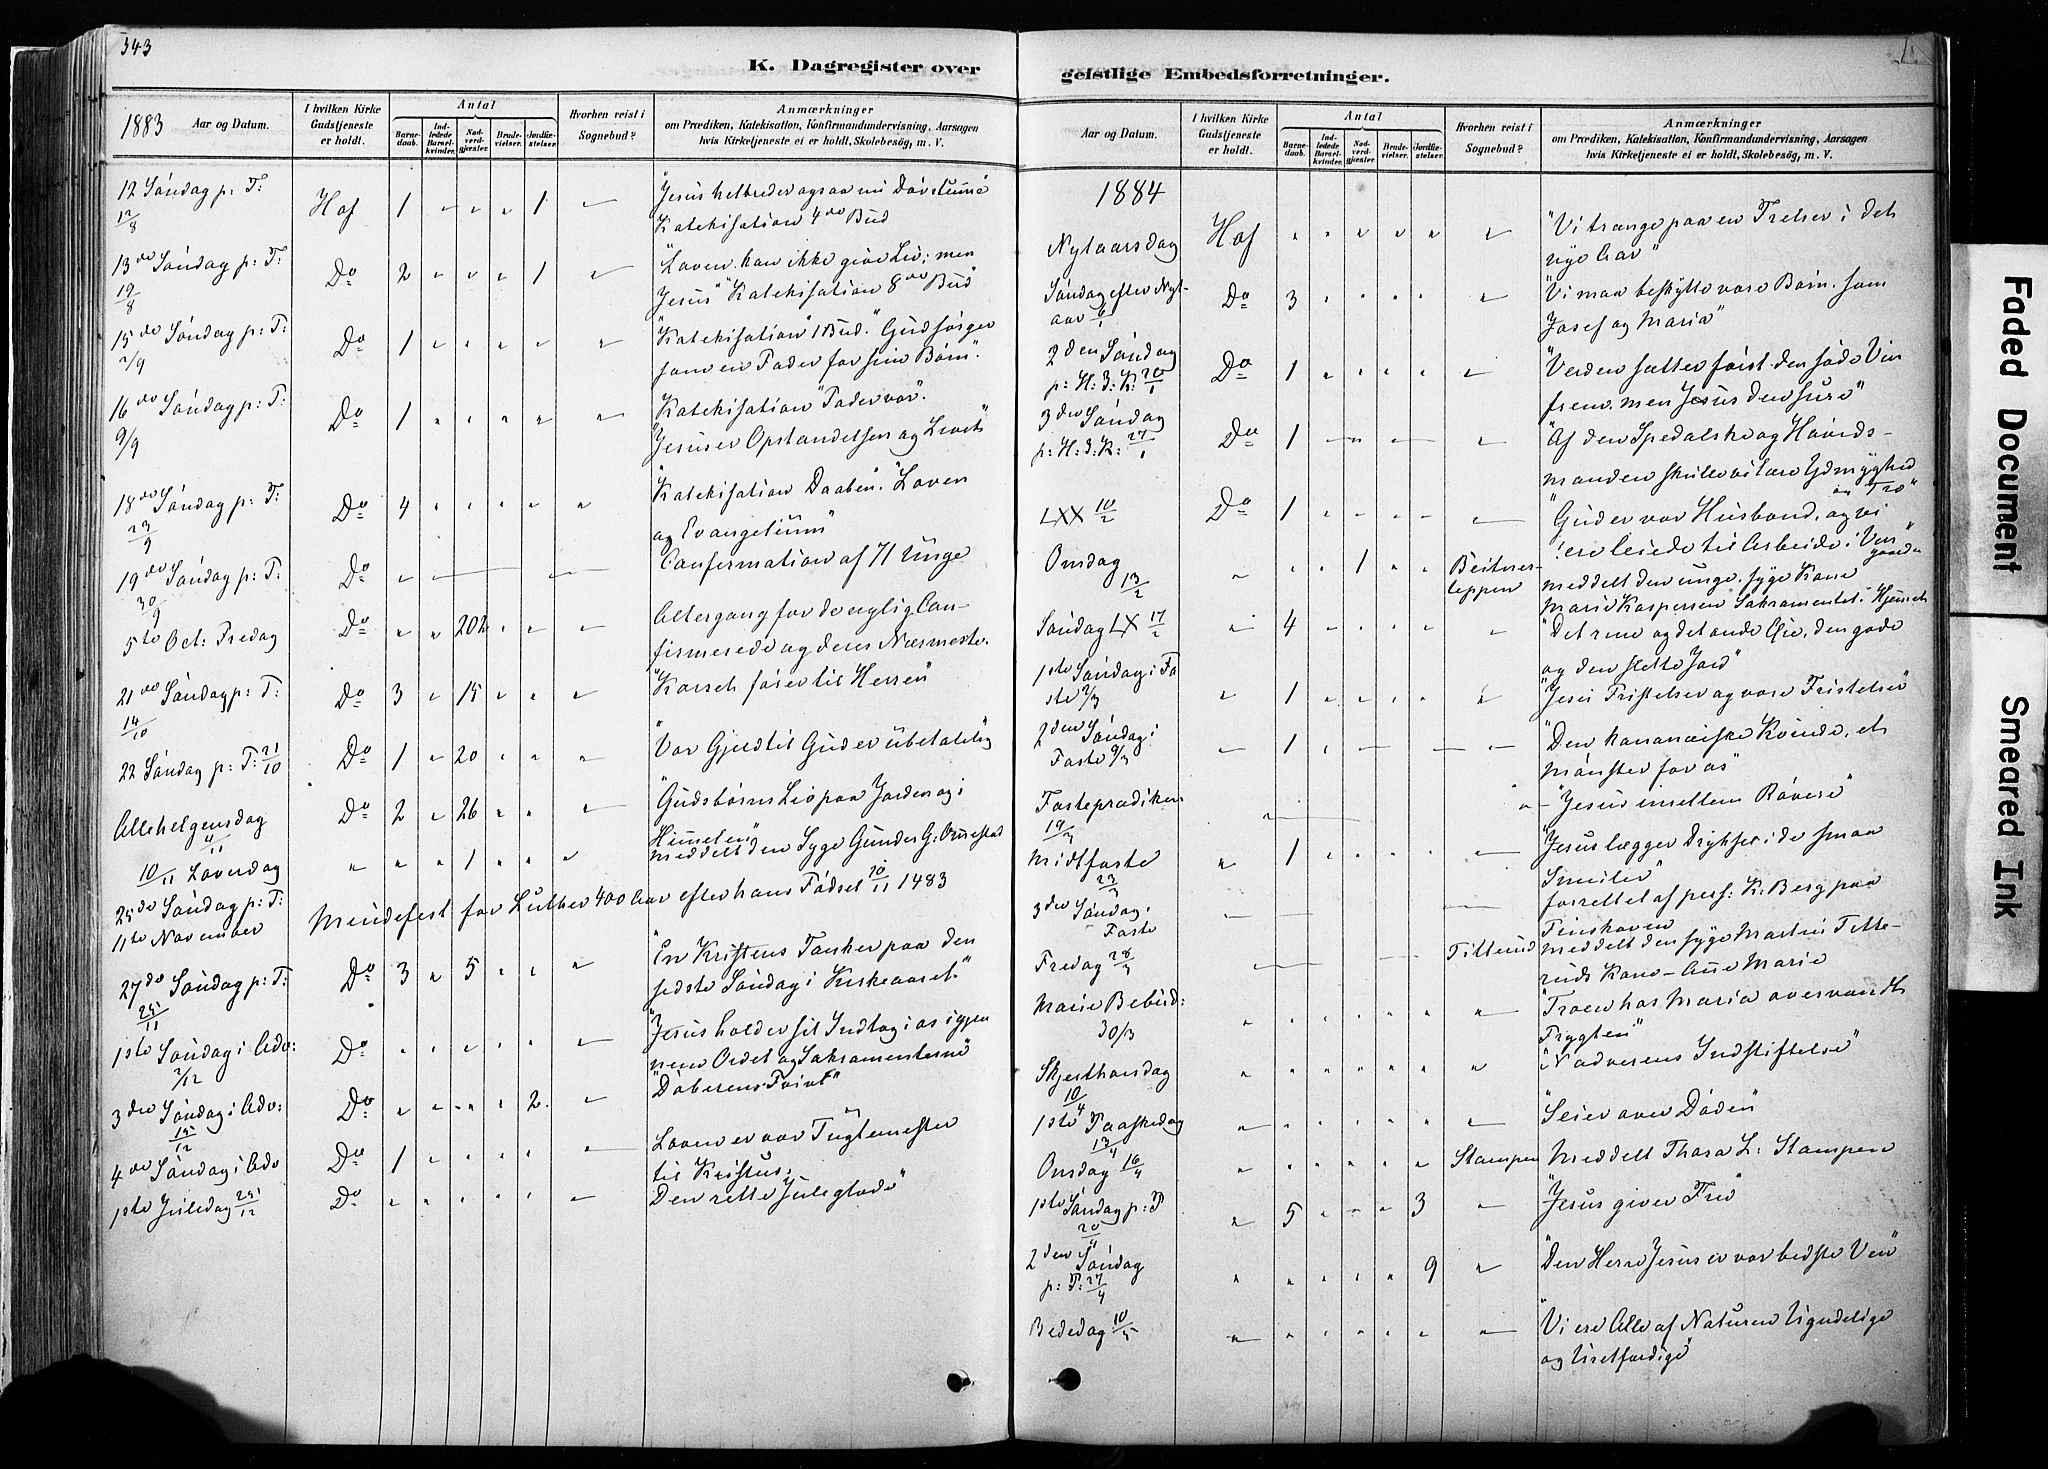 343
K. Dagregister over
1883 Aar og Datum.
I hvilken Kirke Gudstjeneste er holdt.
Antal
Barnedaab.
Indledede Barselkvinder.
Nadverdgjæster.
Brudevielser.
Jordfæstelser.
Hvorhen reist i Sognebud?
Anmærkninger
om Prædiken, Katekisation, Konfirmandundervisning, Aarsagen
hvis Kirketjeneste ei er holdt, Skolebesög, m. V.
12 Søndag p: T: 12/8 Hof 1 " " " 1 "
"Jesus helbreder ogsaa nu Døvstumme"
Katekisation 4de Bud
13de Søndag p: T: 19/8 Do 2 " " " 1 "
"Loven kan ikke give Liv; men
Jesus" Katekisation 8de Bud
15de Søndag p: T: 2/9 Do 1 " " " " "
Katekisation 1 Bud. "Gud sørger
som en Fader for sine Børn".
16de Søndag p: T: 9/9 Do 1 " " " " "
Katekisation Fadervor.
"Jesus er Opstandelsen og Livet"
18de Søndag p: T: 23/9 Do 4 " " " " "
Katekisation Daaben. "Loven
og Evangelium"
19de Søndag p: T: 30/9 Do "
Confirmation af 71 Unge
5te Oct: Fredag Do " " 202 " " "
Altergang for de nylig Con-
firmerede og deres Nærmeste.
21de Søndag p: T: 14/10 Do 3 " 15 " " "
"Korset fører til Herren"
22 Søndag p: T: 21/10 Do 1 " 20 " " "
"Vor Gjæld til Gud er ubetalelig"
Allehelgensdag 4/11 Do 2 " 26 " " "
"Gudsbørns Liv paa Jorden og i
Himmelen"
10/11 Løverdag " " " 1 " " "
meddelt den Syge Gunder G:
25de Søndag p: T: 11te November
Mindefest for Luther 400 Aar efter hans Fødsel 10/11 1483
27de Søndag p: T: 25/11 Do 3 " 5 " " "
"En Kristens Tanker paa den
sidste Søndag i Kirkeaaret."
1ste Søndag i Adv: 2/12 Do " " " " " "
"Jesus holder sit Indtog i os igjen
nem Ordet og Sakramenterne"
3den Søndag i Adv: 15/12 Do " " " " 2 "
"Døberens Tvivl"
4de Søndag i Adv Do 1 " " " " "
Loven er vor Tugtemester
til Kristus.
1ste Juledag 25/12 Do " " " " " "
"Den rette Juleglæde"
geistlige Embedsforretninger.
Aar og Datum.
I hvilken Kirke Gudstjeneste er holdt.
Antal
Barnedaab.
Indledede Barselkvinder.
Nadverdgjæster.
Brudevielser.
Jordfæstelser.
Hvorhen reist i Sognebud?
Anmærkninger
om Prædiken, Katekisation, Konfirmandundervisning, Aarsagen
hvis Kirketjeneste ei er holdt, Skolebesög, m. V.
1884
Nytaarsdag Hof " " " " " "
"Vi trænge paa en Frelser i det
nye Aar"
Søndag efter Nyt-
aar 6/1 Do 3 " " " " "
"Vi maa beskytte vore Børn, som
Josef og Maria"
2den Søndag
p: H: 3: K: 20/1 Do 1 " " " " "
"Verden sætter først den søde Vin
frem, men Jesus den sure"
3den Søndag
p: H: 3: K: 27/1 Do 1 " " " " "
"Af den Spedalske og Høveds-
manden skulle vi lære Ydmyghed
og Tro"
LXX 10/2 Do 1 " " " " "
"Gud er vor Husbond, og vi
ere leiede til Arbeide i Vin
gaarden"
Onsdag 13/2 " " " 1 " "
meddelt den unge, syge Kone
Marie Kaspersen Sakramentet i Hjemmet
Søndag LX 17/2 " 4 " " " " "
"Det rene og det onde Øie, den gode
og den slette Jord"
1ste Søndag i Fa
ste 2/3 " 1 " " " " "
"Jesu Fristelser og vore Fristelser"
2den Søndag i
Faste 9/3 " 1 " " " " "
"Den kananæiske Kvinde, et
Mønster for os"
Fasteprædiken 19/3
"Jesus imellem Røvere"
Midtfaste 23/3 " 1 " " " " "
"Jesus lægger Drykker i de smaa
Smuler"
3den Søndag i
Faste
forrettet af pers. K: Berg paa
Finskoven
Fredag 28/3 Titterud
meddelt den syge Martin Titte-
ruds Kone - Anne Marie
Marie Bebud: 30/3 " " " " " " "
"Troen hos Maria overvandt
Frygten"
Skjærthorsdag 10/4 " " " " " "
"Nadverens Indstiftelse"
1ste Paaskedag 13/4 " " " " " " "
"Seier over Døden"
Onsdag 16/4 " " " " " " Stampen
Meddelt Thora L: Stampen
1ste Søndag p: P 20/4 " 5 " " " 3 "
"Jesus giver Fred"
2den Søndag
p: P: 27/4 " " " " " 9 "
"Den Herre Jesus er vor bedste Ven"
Bededag 10/5 " " " " " " "
"Vi ere Alle af Naturen Ugudelige
og Uretfærdige"
Faded Document
Smeared Ink